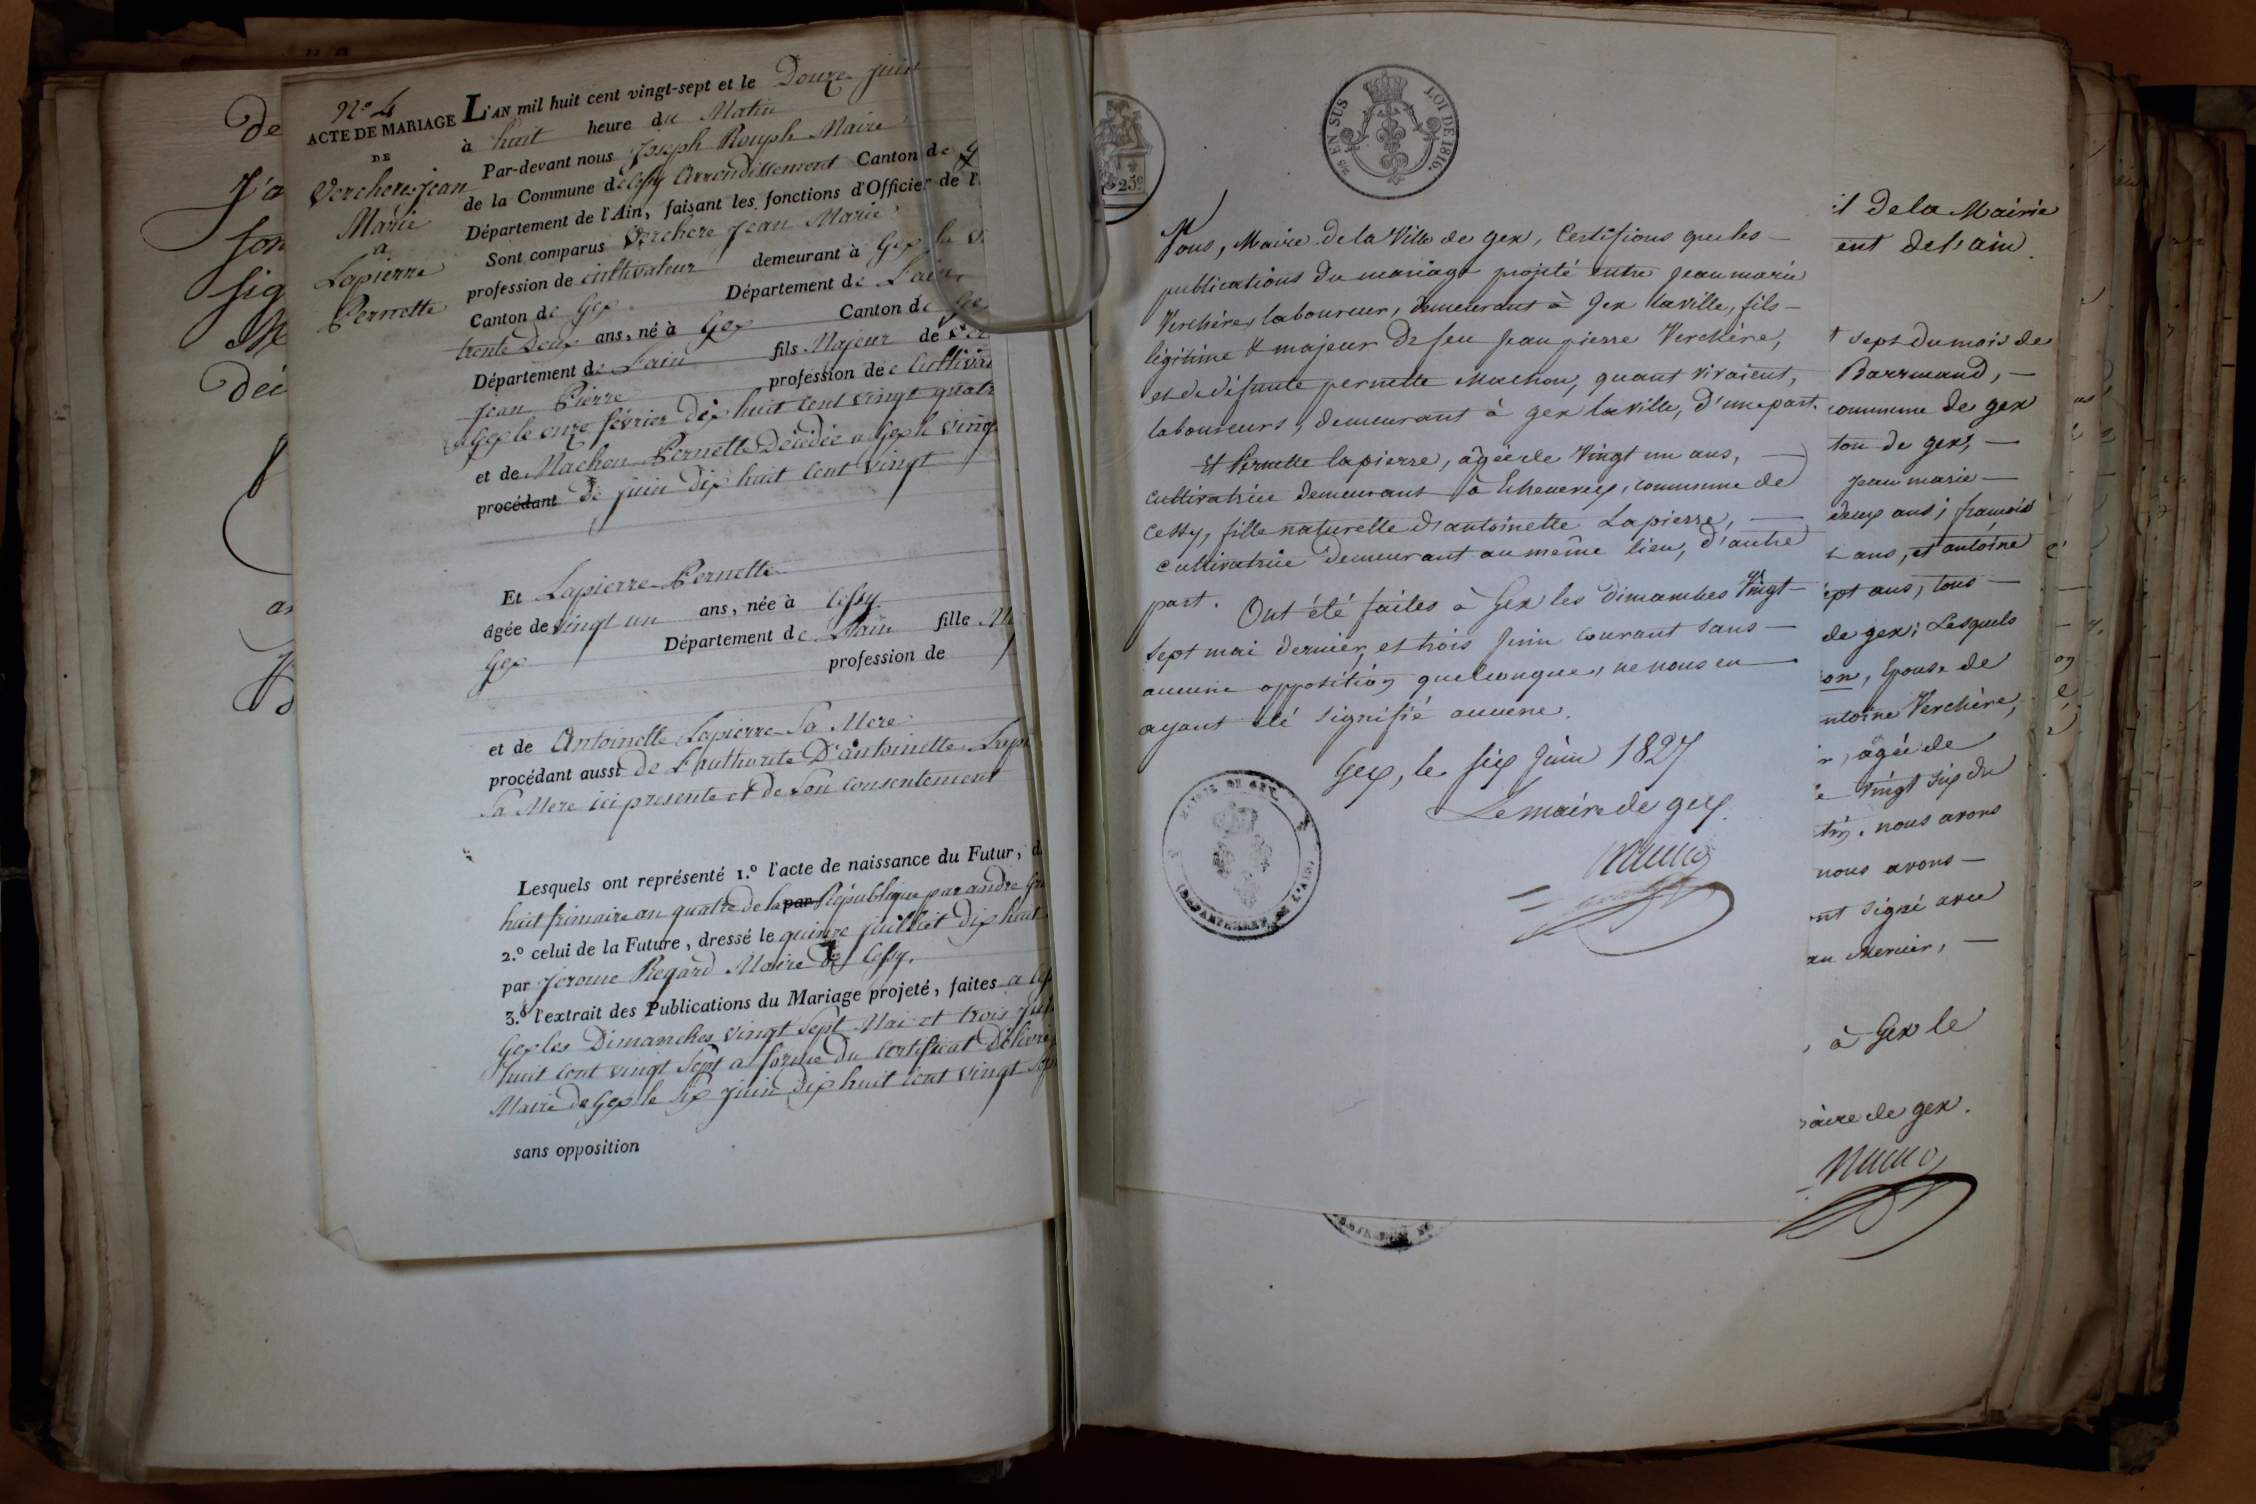 de
J'a
son
sig
Me
déc
N.º 4
ACTE DE MARIAGE
DE
Verchere Jean
Marie
a
Lapierre
Pernette
L'AN mil huit cent vingt-sept et le Douze juin
à huit heure du Matin
Par-devant nous Joseph Rouph Maire
de la Commune de Cessy Arrondissement Canton de G
Département de l'Ain, faisant les fonctions d'Officier de l'
Sont comparus Verchere Jean Marie
profession de cultivateur demeurant à Gex la Vi
Canton de Gex Département de L'ain
trente Deux ans, né à Gex Canton de Ge
Département de L'ain fils Majeur de
Jean Pierre profession de Cultiva
a Gex le onze février dix huit cent vingt quatr
et de Machon Pernette Décédée a Gex le ving
procédant de juin dix huit cent vingt
Et Lapierre Pernette
âgée de vingt un ans, née à Cessy
Gex Département de L'ain fille
profession de
et de Antoinette Lapierre Sa Mere
procédant aussi de L'authorité D'antoinette Lapi
Sa Mere ici presente et de Son consentement
Lesquels ont représenté 1.º l'acte de naissance du Futur, d
huit frimaire an quatre de la par République par andré
2.º celui de la Future, dressé le quinze juillet dix huit
par Jerome Regard Maire de Cessy.
3.º l'extrait des Publications du Mariage projeté, faites a
Gex les Dimanches vingt Sept Mai et trois Jui
huit cent vingt Sept a forme du Certificat Délivré
Maire de Gex le Six juin dix huit cent vingt Sept
sans opposition
25 EN SUS
LOI DE 1816.
25c
Nous, Maire de la Ville de gex, Certifions que les
publications du mariage projeté entre Jean marie
Verchère, laboureur, demeurant à Gex la ville, fils
légitime & majeur de feu Jean pierre Verchère,
et de défunte pernette Machon, quant vivaient,
laboureurs, demeurant à gex la ville, d'une part.
Et Pernette lapierre, âgée de Vingt un ans,
cultivatrice demeurant à Echenevex, commune de
Cessy, fille naturelle d'antoinette Lapierre,
cultivatrice demeurant au même lieu, d'autre
part.
Ont été faites à Gex les dimanches Vingt
sept mai dernier, et trois Juin courant sans
aucune opposition quelconque, ne nous en
ayant été signifié aucune.
Gex, le six Juin 1827
Le maire de gex.
MAIRIE DE GEX
(DÉPARTEMENT DE L'AIN)
il de la Mairie
ent de l'ain.
t sept du mois de
Barrmand,
commune de gex
ton de gex,
Jean marie
deux ans; francois
t ans, et antoine
ept ans, tous
de gex; Lesquels
on, Epouse de
ntoine Verchère,
r, agée de
e Vingt six du
nous avons
nous avons
ont signé avec
au Mercier,
, à Gex le
aire de gex.